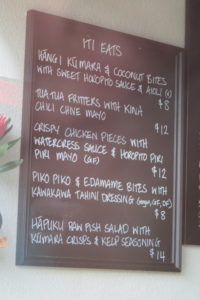 ITI EATS
HĀNGI KŪMARA & COCONUT BITES
WITH SWEET HOROPITO SAUCE & AIOLI (V)
$8
TUATUA FRITTERS WITH KINA
CHILI CHNE MAYO
$12
CRISPY CHICKEN PIECES WITH
WATERCRESS SAUCE & HOROPITO PIRI
PIRI MAYO (GF)
$12
PIKO PIKO & EDAMAME BITES WITH
KAWAKAWA TAHINI DRESSING (vegan, GF, DF)
$8
HĀPUKU RAW FISH SALAD WITH
KŪMARA CRISPS & KELP SEASONING
$14